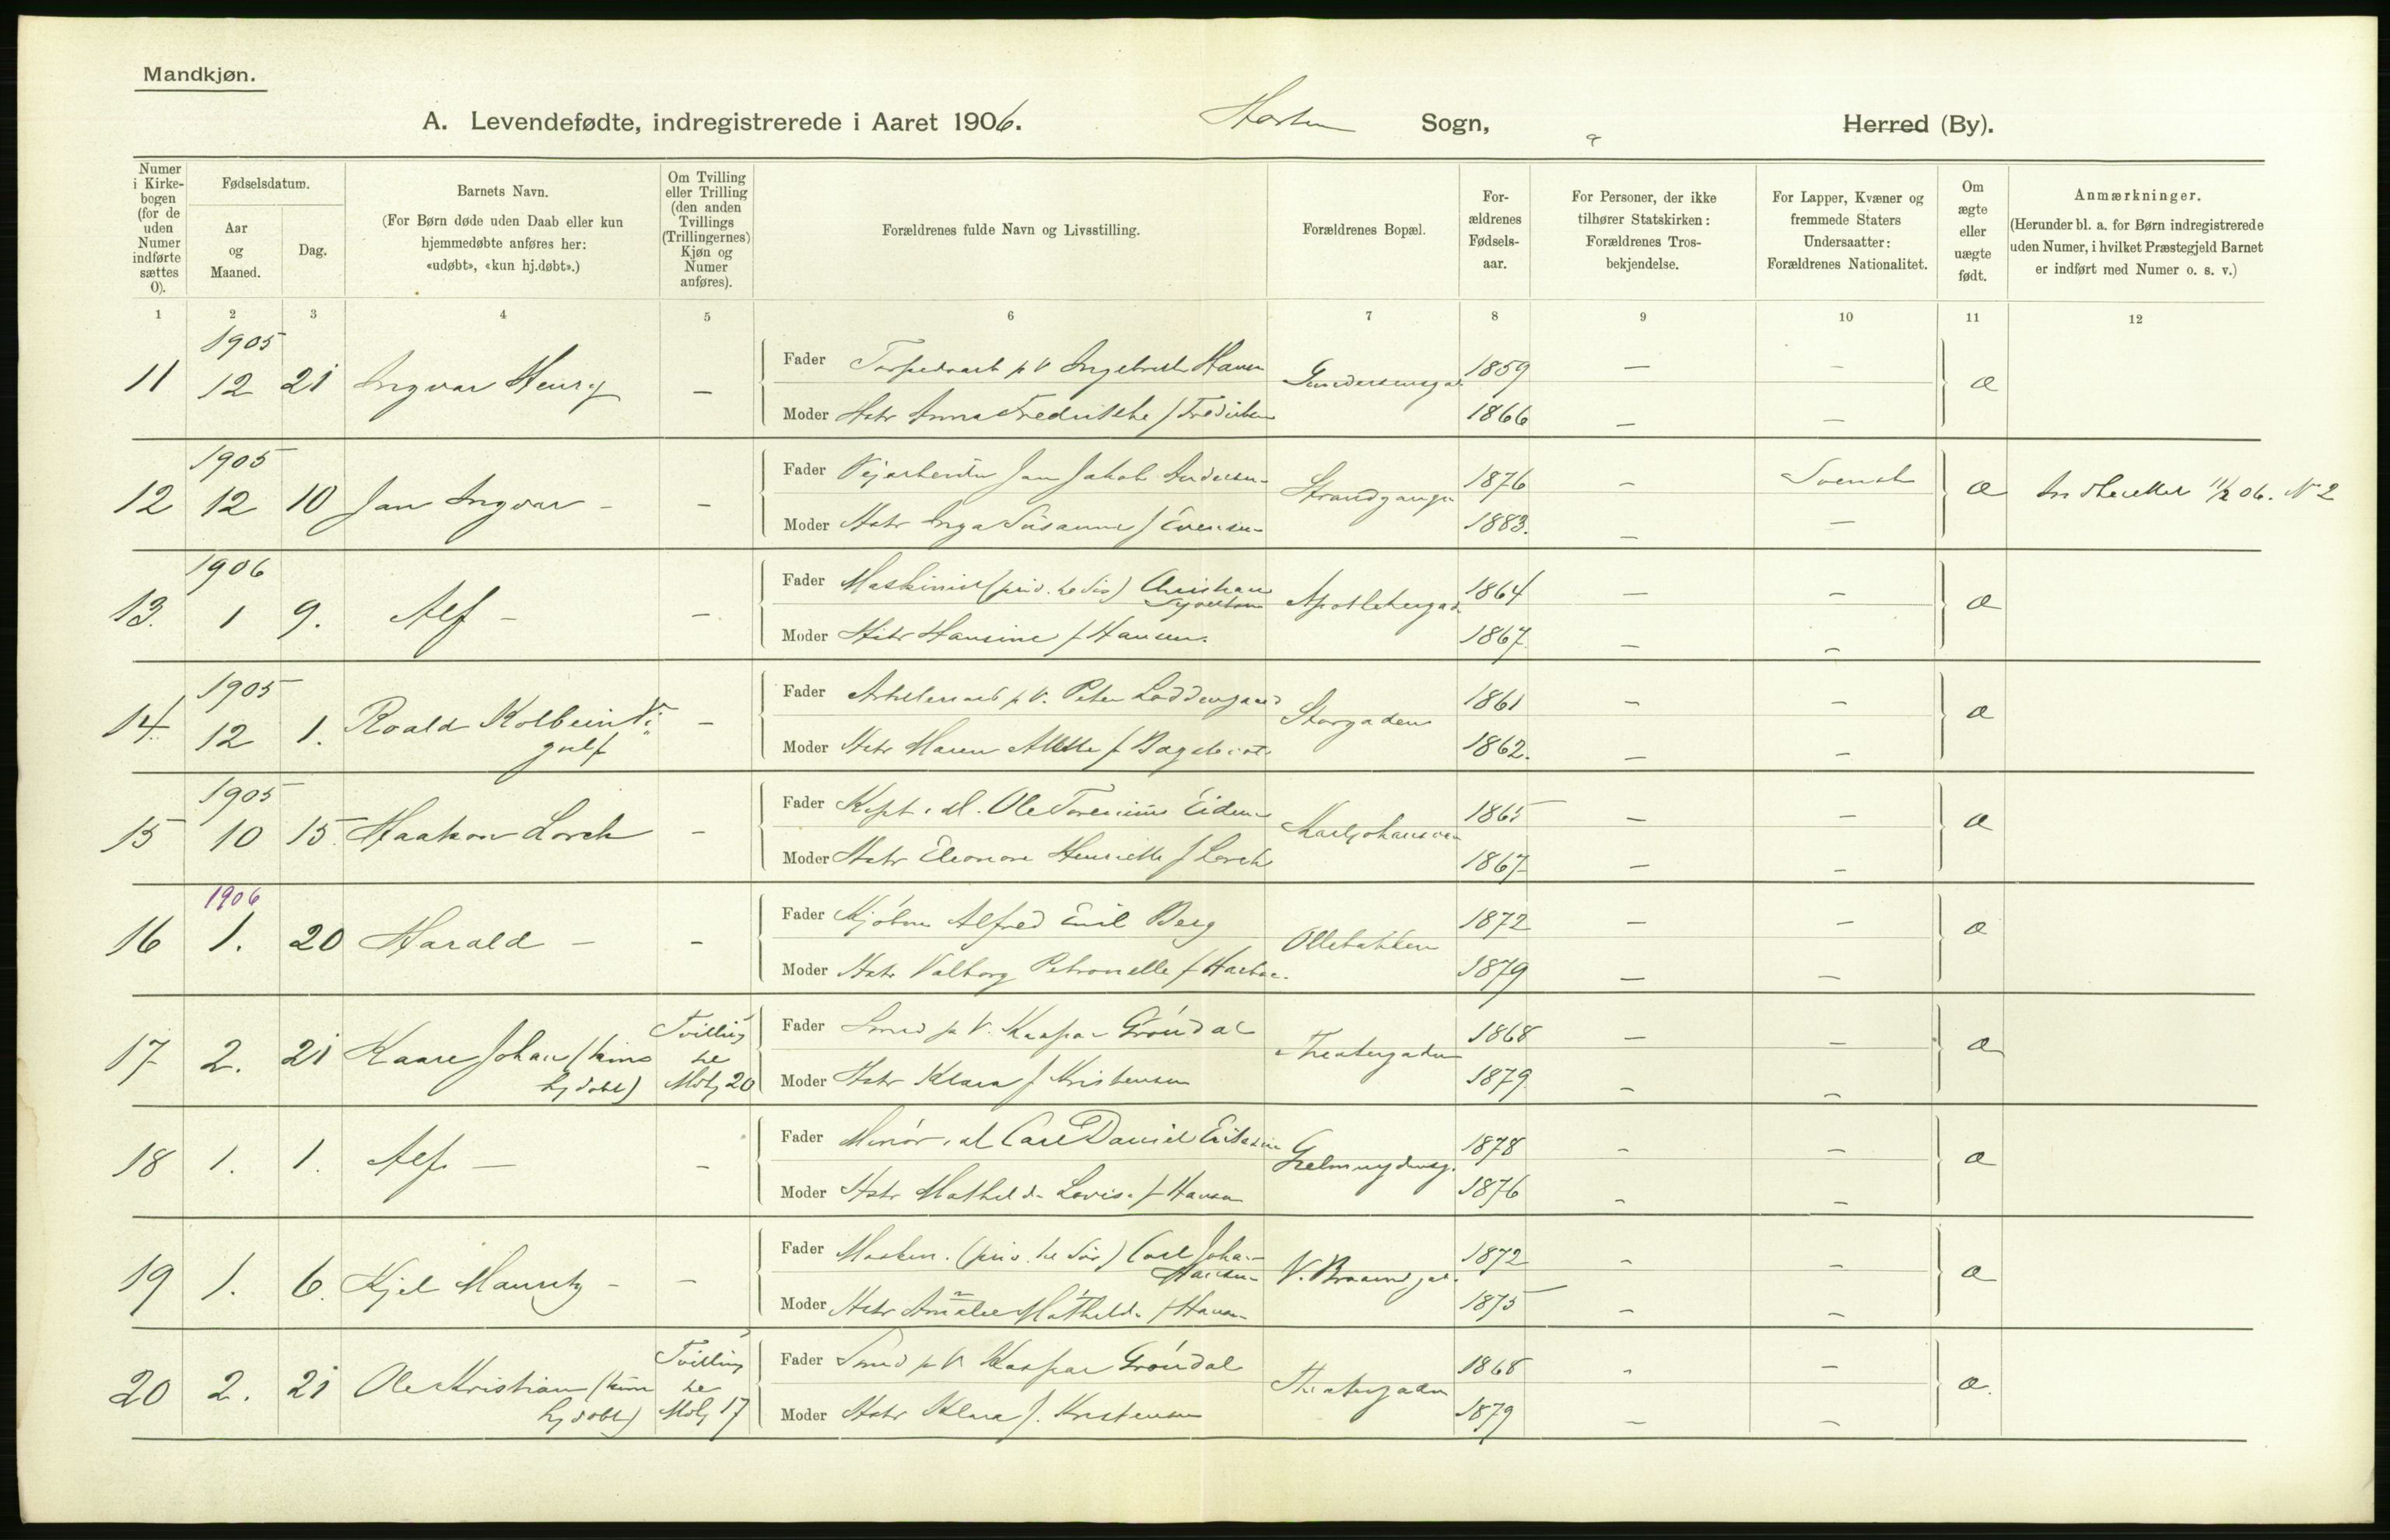 Mandkjøn.
A. Levendefødte, indregistrerede i Aaret 1906. Horten Sogn, Herred (By).
Numer i Kirkebogen (for de uden Numer indførte sættes 0).
Fødselsdatum.
Aar og Maaned.
Dag.
Barnets Navn.
(For Børn døde uden Daab eller kun hjemmedøbte anføres her: «udøbt», «kun hj.døbt».)
Om Tvilling eller Trilling (den anden Tvillings (Trillingernes) Kjøn og Numer anføres).
Forældrenes fulde Navn og Livsstilling.
Forældrenes Bopæl.
Forældrenes Fødselsaar.
For Personer, der ikke tilhører Statskirken: Forældrenes Trosbekjendelse.
For Lapper, Kvæner og fremmede Staters Undersaatter: Forældrenes Nationalitet.
Om ægte eller uægte født.
Anmærkninger.
(Herunder bl. a. for Børn indregistrerede uden Numer, i hvilket Præstegjeld Barnet er indført med Numer o. s. v.)
1 2 3 4 5 6 7 8 9 10 11 12
1905
11 12 21 Ingvar Henry –
Fader Torpedoarb p V Ingebret Hansen Gundersensgad 1859 – – æ
Moder Hstr Anna Fredrikke f Fredriksen 1866 – –
1905
12 12 10 Jan Ingvar – –
Fader Vejarbeider Jan Jakob Andersen Strandgangen 1876 – Svensk æ 11/2 06. N 2
Moder Hstr Inga Susanne f Evensen 1883. – –
1906
13. 1 9. Alf – –
Fader Maskinist (priv. bedr) Christian Syvertsen Apothekergad. 1864 – – æ
Moder Hstr Hansine f Hansen. 1867 – –
1905
14. 12 1. Roald Kolbein Vi: gulf –
Fader Artilleriarb p V. Peter Loddengaard Storgaden 1861 – – æ
Moder Hstr Maren f 1862. – –
1905
15 10 15. Haakon Lorck –
Fader Kapt. i M. Ole Severinus Eidem Karljohansvern 1865 – – æ
Moder Hstr Eleonore Henriette f Lorck 1867 – –
1906
16 1. 20 Harald – –
Fader Alfred Emil Berg Ollebakken 1872 – – æ
Moder Hstr Valborg Petronelle f 1879 – –
17 2. 21 Kaare Johan (kun hjdøbt) Tvilling til Mkj 20
Fader Smed p V. Kaspar Grøndal Theatergaden 1868 – – æ
Moder Hstr Klara f Kristensen 1879 – –
18 1. 1. Alf – –
Fader Minør i M Carl Daniel Eriksen 1878 – – æ
Moder Hstr Mathilde Lovise f Hansen 1876 – –
19 1. 6. Kjel Mauritz – –
Fader Maskin. (priv. bedr) Carl Johan Hansen V. Braarudgad. 1872 – – æ
Moder Hstr Amalie Mathilde f Hansen 1875 – –
20 2. 21 Ole Kristian (kun hjdøbt) Tvilling til Mkj 17
Fader Smed p V Kaspar Grøndal Theatergaden 1868 – – æ.
Moder Hstr Klara f. Kristensen 1879 – –